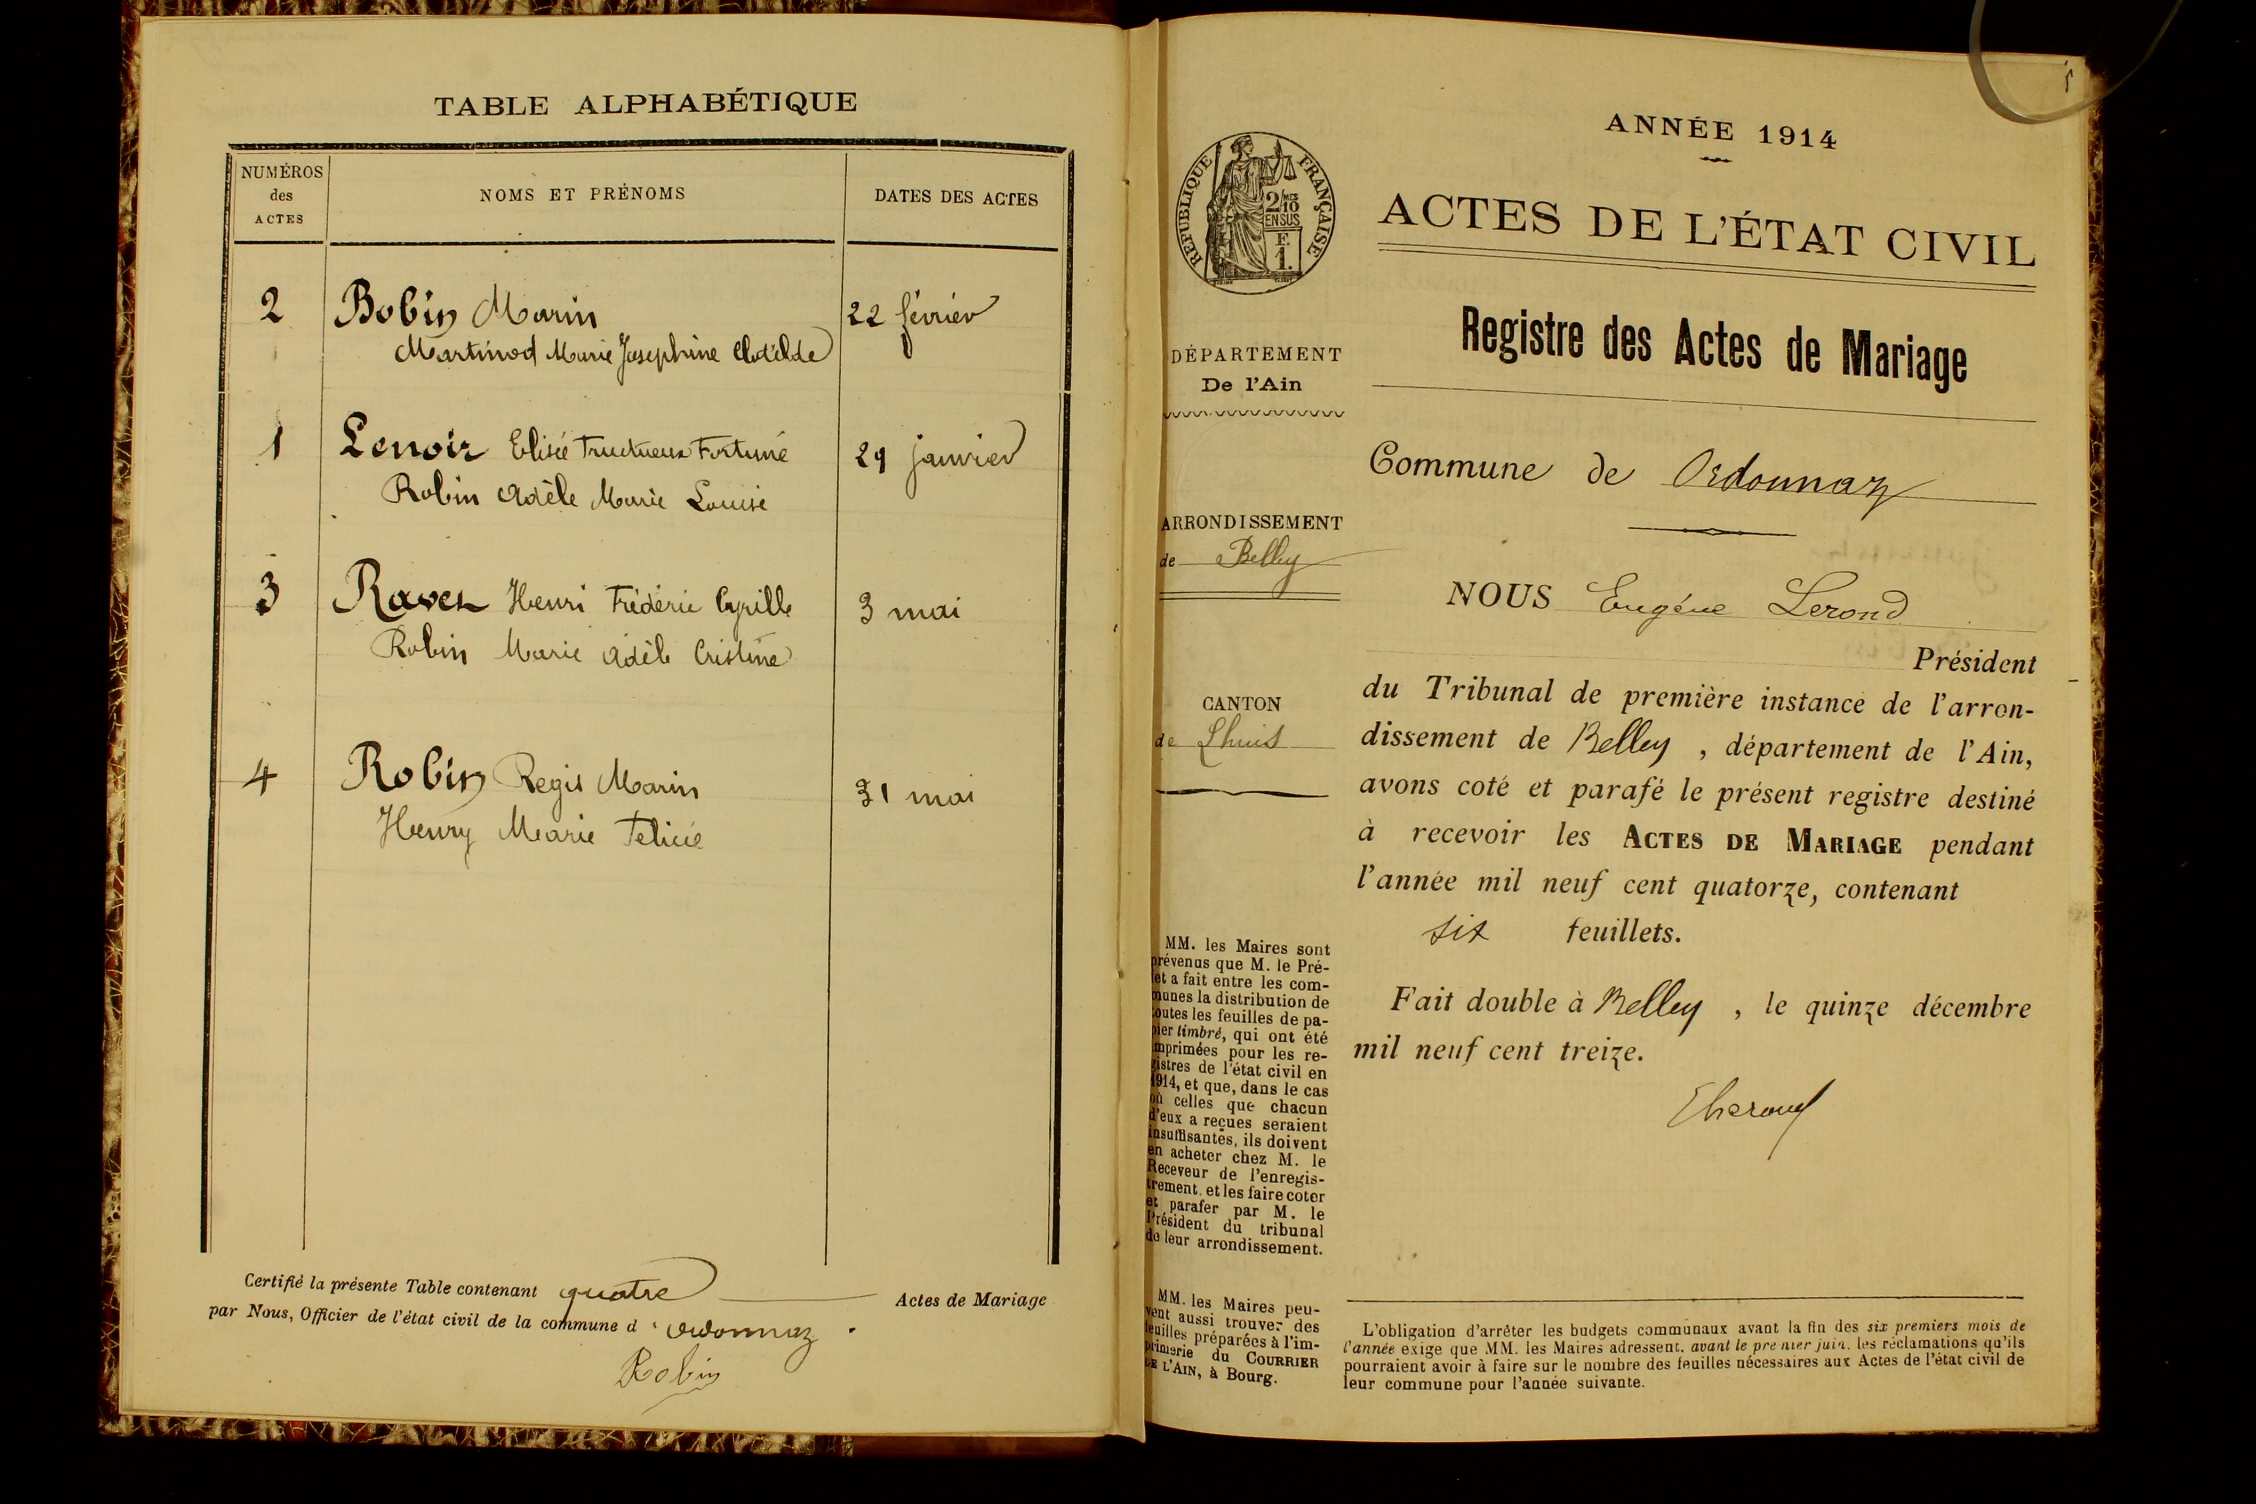 TABLE ALPHABÉTIQUE
NUMÉROS
des
ACTES
NOMS ET PRÉNOMS
DATES DES ACTES
2 Bobin Marin 22 février
Martinod Marie Josephine Clotilde
1 Lenoir Elisée Fructueux Fortuné 29 janvier
Robin Adèle Marie Louise
3 Ravet Henri Frédéric Cyrille 3 mai
Robin Marie Adèle Cristine
4 Robin Regis Marin 31 mai
Henry Marie Felicie
Certifié la présente Table contenant quatre Actes de Mariage
par Nous, Officier de l'état civil de la commune d'Ordonnaz.
Robin
ANNÉE 1914
ACTES DE L'ÉTAT CIVIL
Registre des Actes de Mariage
RÉPUBLIQUE FRANÇAISE
2/10MES
EN SUS
F.
1.
DÉPARTEMENT
De l'Ain
ARRONDISSEMENT
de Belley
CANTON
de Lhuis
MM. les Maires sont
prévenus que M. le Pré-
fet a fait entre les com-
munes la distribution de
toutes les feuilles de pa-
pier timbré, qui ont été
imprimées pour les re-
gistres de l'état civil en
1914, et que, dans le cas
où celles que chacun
d'eux a reçues seraient
insuffisantes, ils doivent
en acheter chez M. le
Receveur de l'enregis-
trement, et les faire coter
et parafer par M. le
Président du tribunal
de leur arrondissement.
MM. les Maires peu-
vent aussi trouver des
feuilles préparées à l'im-
primerie du COURRIER
DE L'AIN, à Bourg.
Commune de Ordonnaz
NOUS Eugène Lerond
Président
du Tribunal de première instance de l'arron-
dissement de Belley, département de l'Ain,
avons coté et parafé le présent registre destiné
à recevoir les ACTES DE MARIAGE pendant
l'année mil neuf cent quatorze, contenant
six feuillets.
Fait double à Belley, le quinze décembre
mil neuf cent treize.
L'obligation d'arrêter les budgets communaux avant la fin des six premiers mois de
l'année exige que MM. les Maires adressent, avant le premier juin, les réclamations qu'ils
pourraient avoir à faire sur le nombre des feuilles nécessaires aux Actes de l'état civil de
leur commune pour l'année suivante.